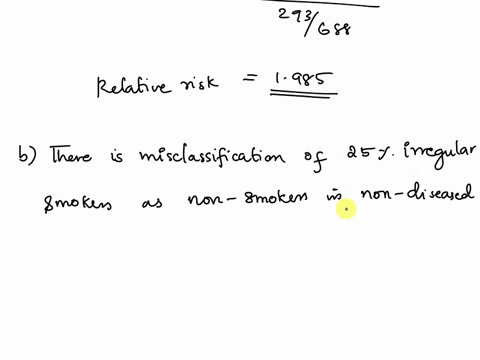 293/688
Relative risk = 1.985
b) There is misclassification of 25%. irregular
smokers as non-smokers in non-diseased